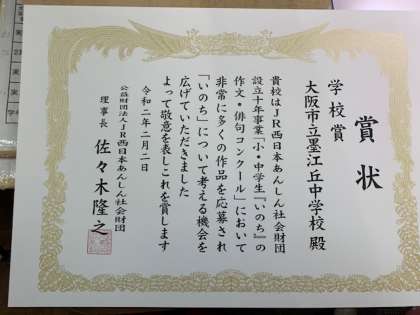 賞状
学校賞
大阪市立墨江丘中学校 殿
貴校はJR西日本あんしん社会財団
設立十年事業「小・中学生『いのち』の
作文・俳句コンクール」において
非常に多くの作品を応募され
「いのち」について考える機会を
広げていただきました
よって敬意を表しこれを賞します
令和二年二月二日
公益財団法人JR西日本あんしん社会財団
理事長 佐々木隆之